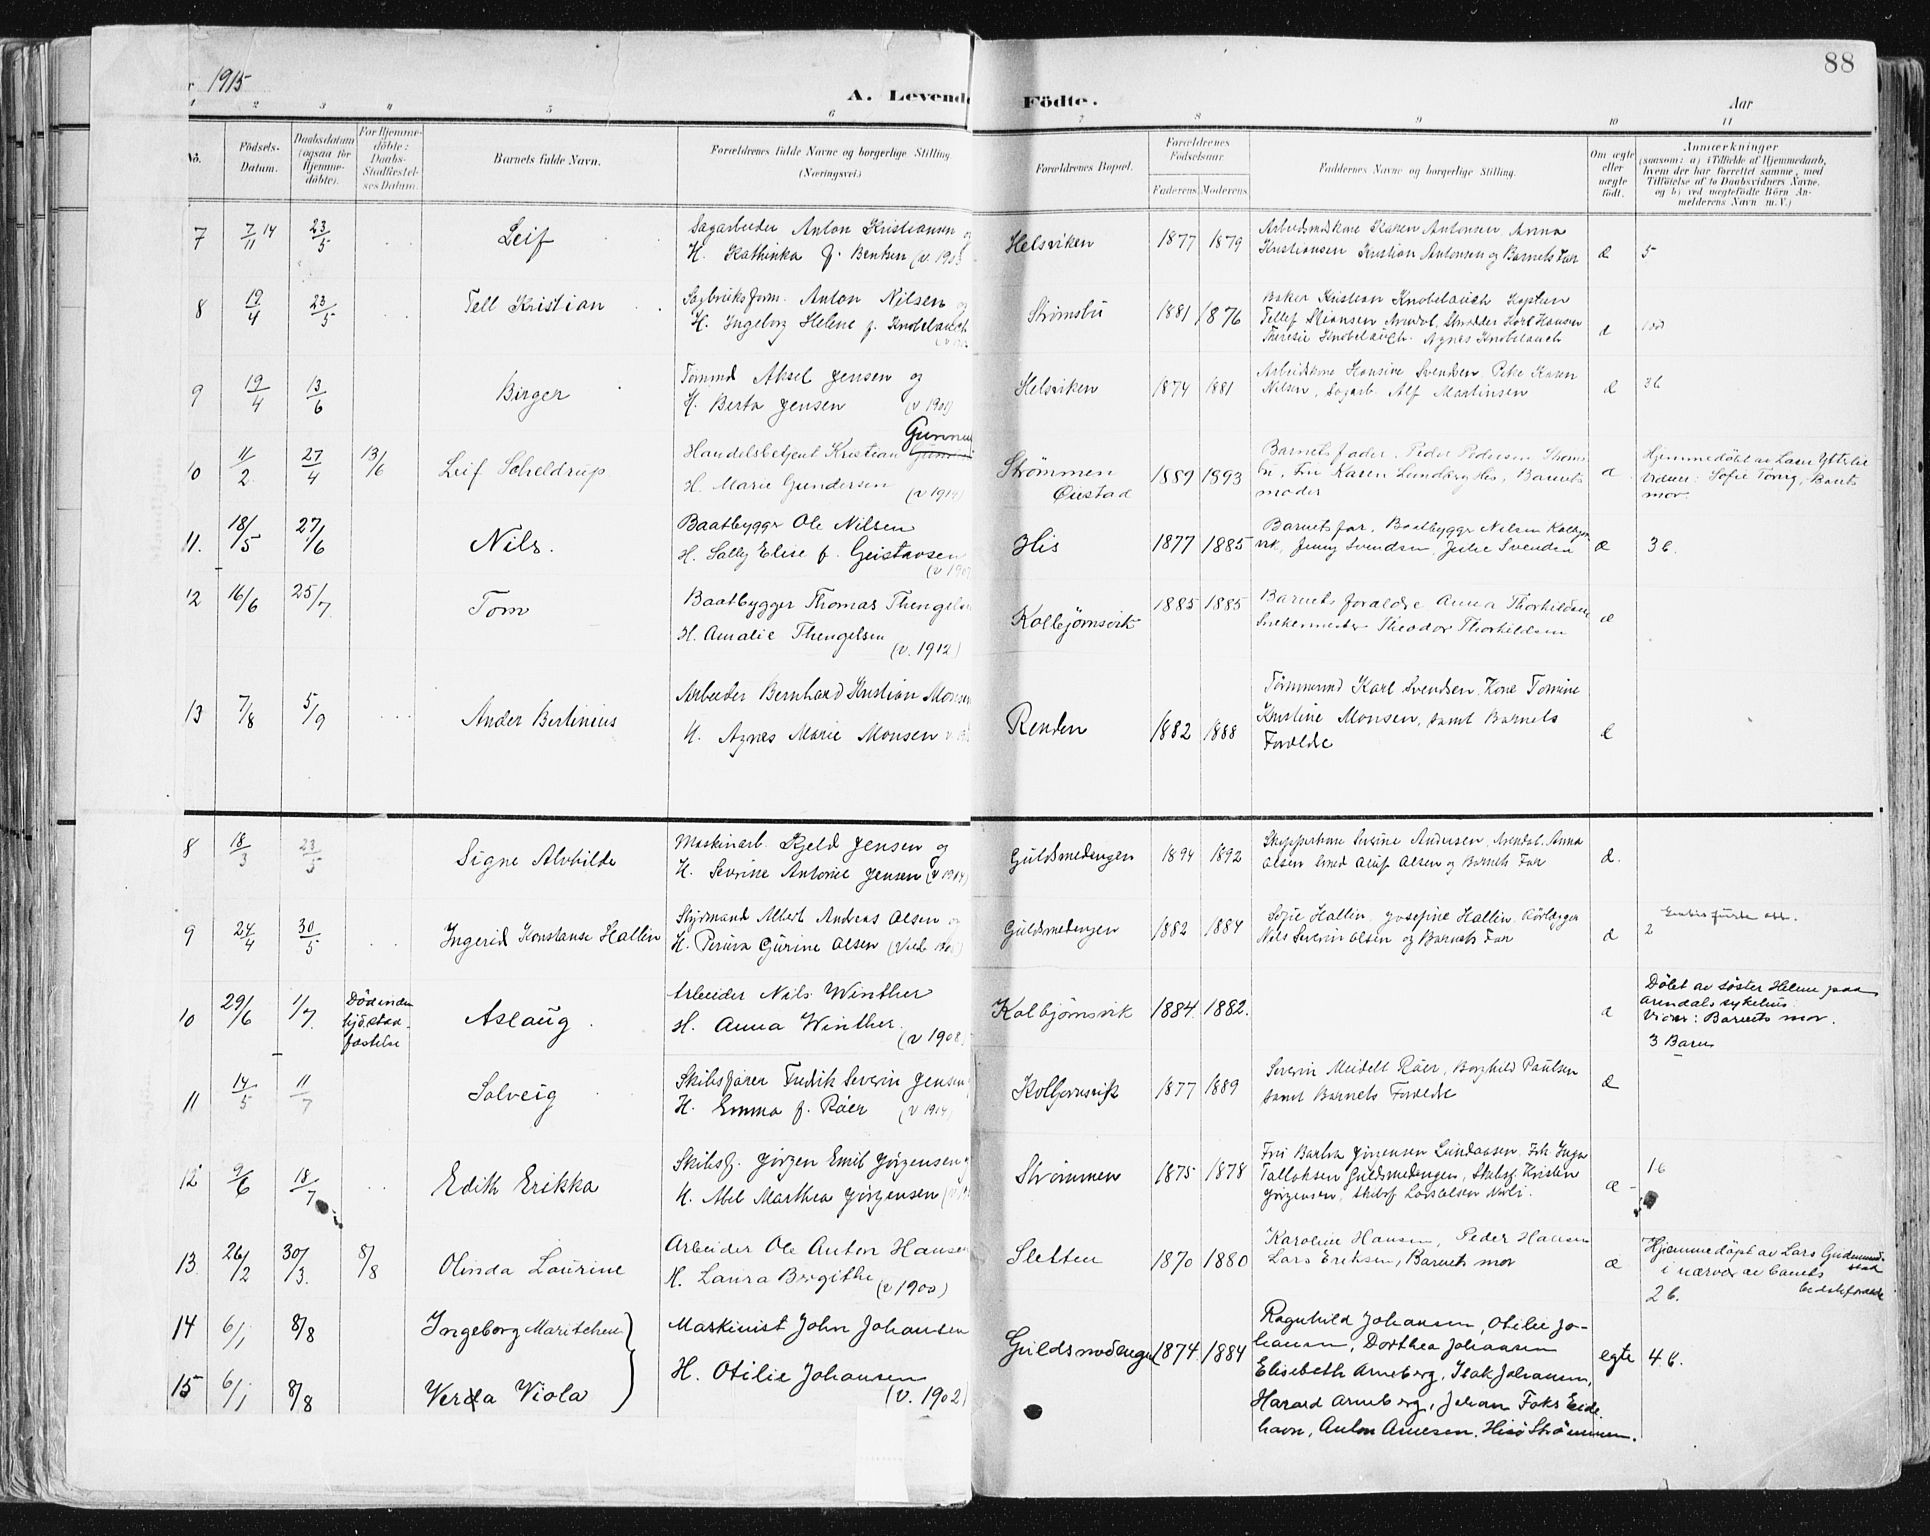 1915
88
A. Levende Födte.
Aar
1 2 3 4 5 6 7 8 9 10 11
No.
Födsels-Datum.
Daabsdatum (ogsaa for Hjemme-døbte).
For Hjemme-döbte: Daabs-Stadfæstel-ses Datum.
Barnets fulde Navn.
Forældrenes fulde Navne og borgerlige Stilling (Næringsvei.)
Forældrenes Bopæl.
Forældrenes Födselsaar.
Faderens Moderens
Faddernes Navne og borgerlige Stilling.
Om ægte eller uægte födt.
Anmærkninger
(saasom: a) i Tilfælde af Hjemmedaab, hvem der har forrettet samme, med Tilföielse af to Daabsvidners Navne, og b) ved uægtefödte Börn An-melderens Navn m. V.)
7 7/11 14 23/5 Leif
Sagarbeider Anton Kristiansen
H. Kathinka f. Bentsen
Helsviken 1877 1879
Arbeidsmdskone Karen Antonsen Anna
Kristiansen Kristian Antonsen og Barnets Far
æ 5
8 19/4 23/5 Tell Kristian
Sagbruksform. Anton Nilsen
H. Ingeborg Helene f. Knobelauch
Strømsbu 1881 1876
Baker Kristian Knobelauch Kaptein
Tellef Arendal, Skrædder Karl Hansen
Therese Knobelauch. Agnes Knobelauch
æ
9 19/4 13/6 Birger
Tømmd Aksel Jensen og
H. Berta Jensen (v 1901)
Helsviken 1874 1881
Arbeidskone Hansine Svendsen Pike Karen
Nilsen, Sagarb. Alf Martinsen
æ 36
10 11/2 27/4 13/6 Leif Scheldrup
Handelsbetjent Kristian
H. Marie Gundersen (v 1914)
Strømmen
Øiestad
1889 1893
Barnets fader, Peder Pedersen Strøms-
bu, Fru Karen Lundberg His, Barnets
moder
æ
Hjemmedøbt av
vidner: Sofie Barnets
mor.
11. 18/5 27/6 Nils.
Baatbygger Ole Nilsen
H. Sally Elise f. Geistavsen
His 1877 1885
Barnets far, Baatbygger Nilsen Kolbjørns
vik, Jenny Svendsen, Julie Svendsen
æ 3 b.
12 16/6 25/7. Tom
Baatbygger Thomas Thengelsen
H. Amalie Thengelsen
(v. 1912)
Kolbjørnsvik 1885 1885
Barnets foraldre Anna Thorkildsen
Snekermester Theodor Thorkildsen
æ
13 7/8 5/9 Ander Bertinius
Arbeider Bernhard Kristian Monsen
H. Agnes Marie Monsen
Renden 1882 1888
Tømmermd Karl Svendsen, Kone Tomine
Kristine Monsen, samt Barnets
Forældre
8 18/3 23/5 Signe Alvhilde
Maskinarb. Kjeld Jensen og
H. Severine Antonie Jensen (v 1914)
Guldsmedengen 1894 1892
Skipperkone Severine Andersen, Arendal. Anna
Olsen Smed Oluf Olsen og Barnets Far
æ.
9 24/4 30/5 Ingerid Konstanse Hallin
Styrmand Albert Andreas Olsen
H. Petrea Gurine Olsen
Guldsmedengen 1882 1884
Sofie Hallin Josefine Hallin
Nils Severin Olsen og Barnets Far
æ 2
10 29/6 1/7.
Død inden
stad-
fæstelse
Aslaug
Arbeider Nils Winther
H. Anna Winther.
(v 1908)
Kolbjørnsvik 1884 1882.
æ
Døbt av søster Helene paa
Arendals sykehus.
Vidner: Barnets mor.
3 Barn
11 14/5 11/7 Solveig
Skibsfører Fredrik Severin Jensen
H. Emma f. Røer (v 1914)
Kolbjørnsvik 1877 1889
Severin Meidell Røer, Borghild Paulsen
samt Barnets Forældre
æ
12 9/6 18/7 Edith Erikka
Skibsf. Jørgen Emil Jørgensen
H. Abel Marthea Jørgensen
Strømmen 1875 1878
Fru Barbra Jørgensen Lundaasen, Frk Inga
Talloksen Guldsmedengen, Skibsf. Kristen
Jørgensen, Skibsf Lars Olsen
æ 1 6
13. 26/2 30/3. 8/8 Olinda Laurine
Arbeider Ole Anton Hansen
H. Laura Birgithe (v 1900)
Sletten 1870 1880
Karoline Hansen, Peder Hansen
Lars Eriksen, Barnets mor
æ
Hjemmedøpt av Lars
i nærvær av barnets
2 b.
14 6/1 8/8 Ingeborg Maritchen
15 6/1 8/8 Verda Viola
Maskinist John Johansen
H. Otilie Johansen
(v. 1902)
Guldsmedengen 1874 1884
Ragnhild Johansen, Otilie Jo-
hansen, Dorthea Johansen
Elisebeth Arneberg, Isak Johansen,
Harald Arneberg, Johan Foks Eide
havn, Anton Arnesen. Hisø Strømmen.
egte 4 b.